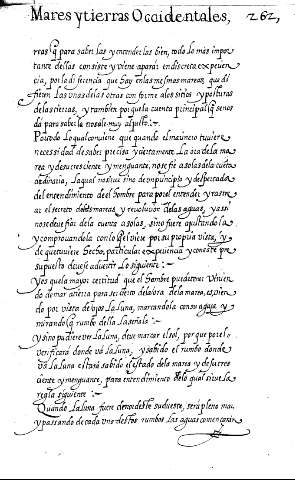 Mares y tierras Occidentales, 262,
rras q̃ para saber las y entender las bien, todo lo mas impor
tante dellas consiste y viene a parar en discreta experien
cia, por la diferencia que hay en las mesmas mareas, que di
fieren las unas de las otras con forme a los sitios y posturas
de las tierras, y tambien por que la cuenta principal que se nos
da para saberla no sale muy al justo.
Por todo lo qual conviene que quando el marinero tuviere
necessidad de saber precisa y çiertamente La ora de la ma
rea y de su creciente y menguante, no se fie a solas de la cuenta
ordinaria, La qual no sirve sino de un principio y despertador
del entendimiento de el hombre para poder entender y rastre
ar el secreto de las mareas y revolucion de las aguas, y assi
no se deve fiar de la cuenta a solas, sino fuere ajustando la
y comprovandola con lo q̃ el viere por su propria vista, y
de que tuviere hecho particular experiencia y con este pre
supuesto deve de advertir Lo siguiente:
Y es que la mayor certitud que el hombre puede tener Vinien
do de mar a tierra para ser cierto de la ora de la marea, es, vien
do por vista de ojos La Luna, marcandola con su aguja y
mirandola q̃ rumbo de ella señala.
Y si no pudiere ver La Luna, deve marcar el sol, por que por el
verificara donde va La Luna, y sabido el rumbo donde
va La Luna estara sabido el estado de la marea y de su crec
ciente y menguante, para entendimiento de lo qual sirve la
regla siguiente:
Quando La Luna fuere al nordeste sudueste, sera pleno mar,
y passando de cada uno destos rumbos Las aguas començaran